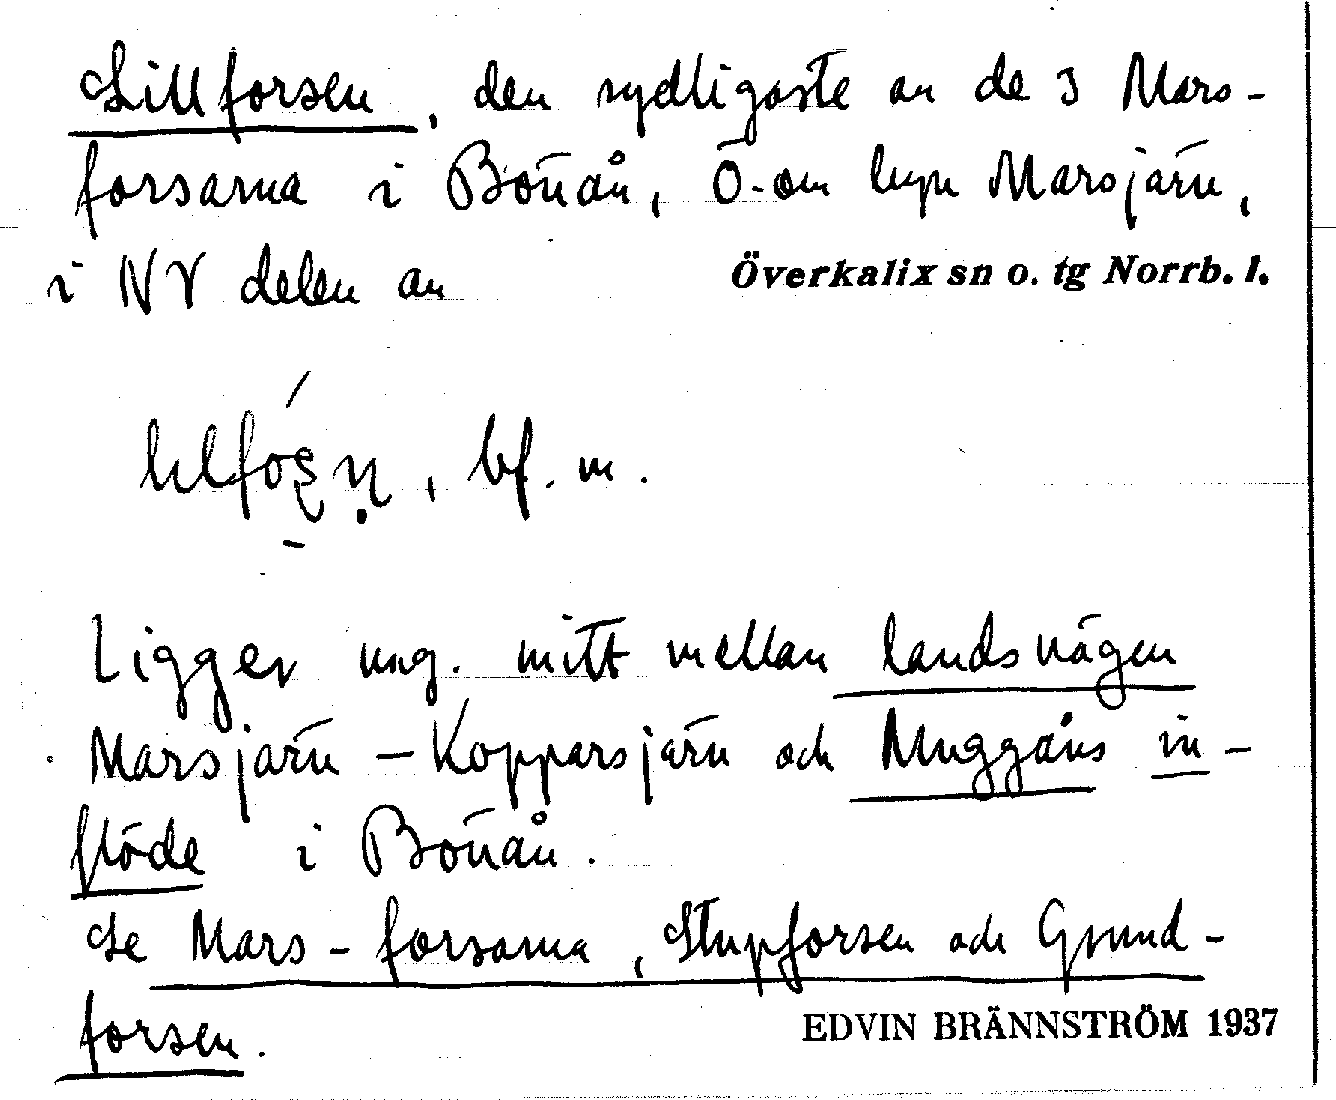 Lillforsen, den sydligaste av de 3 Mars-
forsarna i Bönån, Ö-om byn Marsjärv,
i NV delen av Överkalix sn o. tg Norrb. l.
, bf. m.
Ligger ung. mitt mellan landsvägen
Marsjärv – Kopparsjärv och Muggåns in-
flöde i Bönån.
Se Mars-forsarna, Stupforsen och Grund-
forsen.
EDVIN BRÄNNSTRÖM 1937